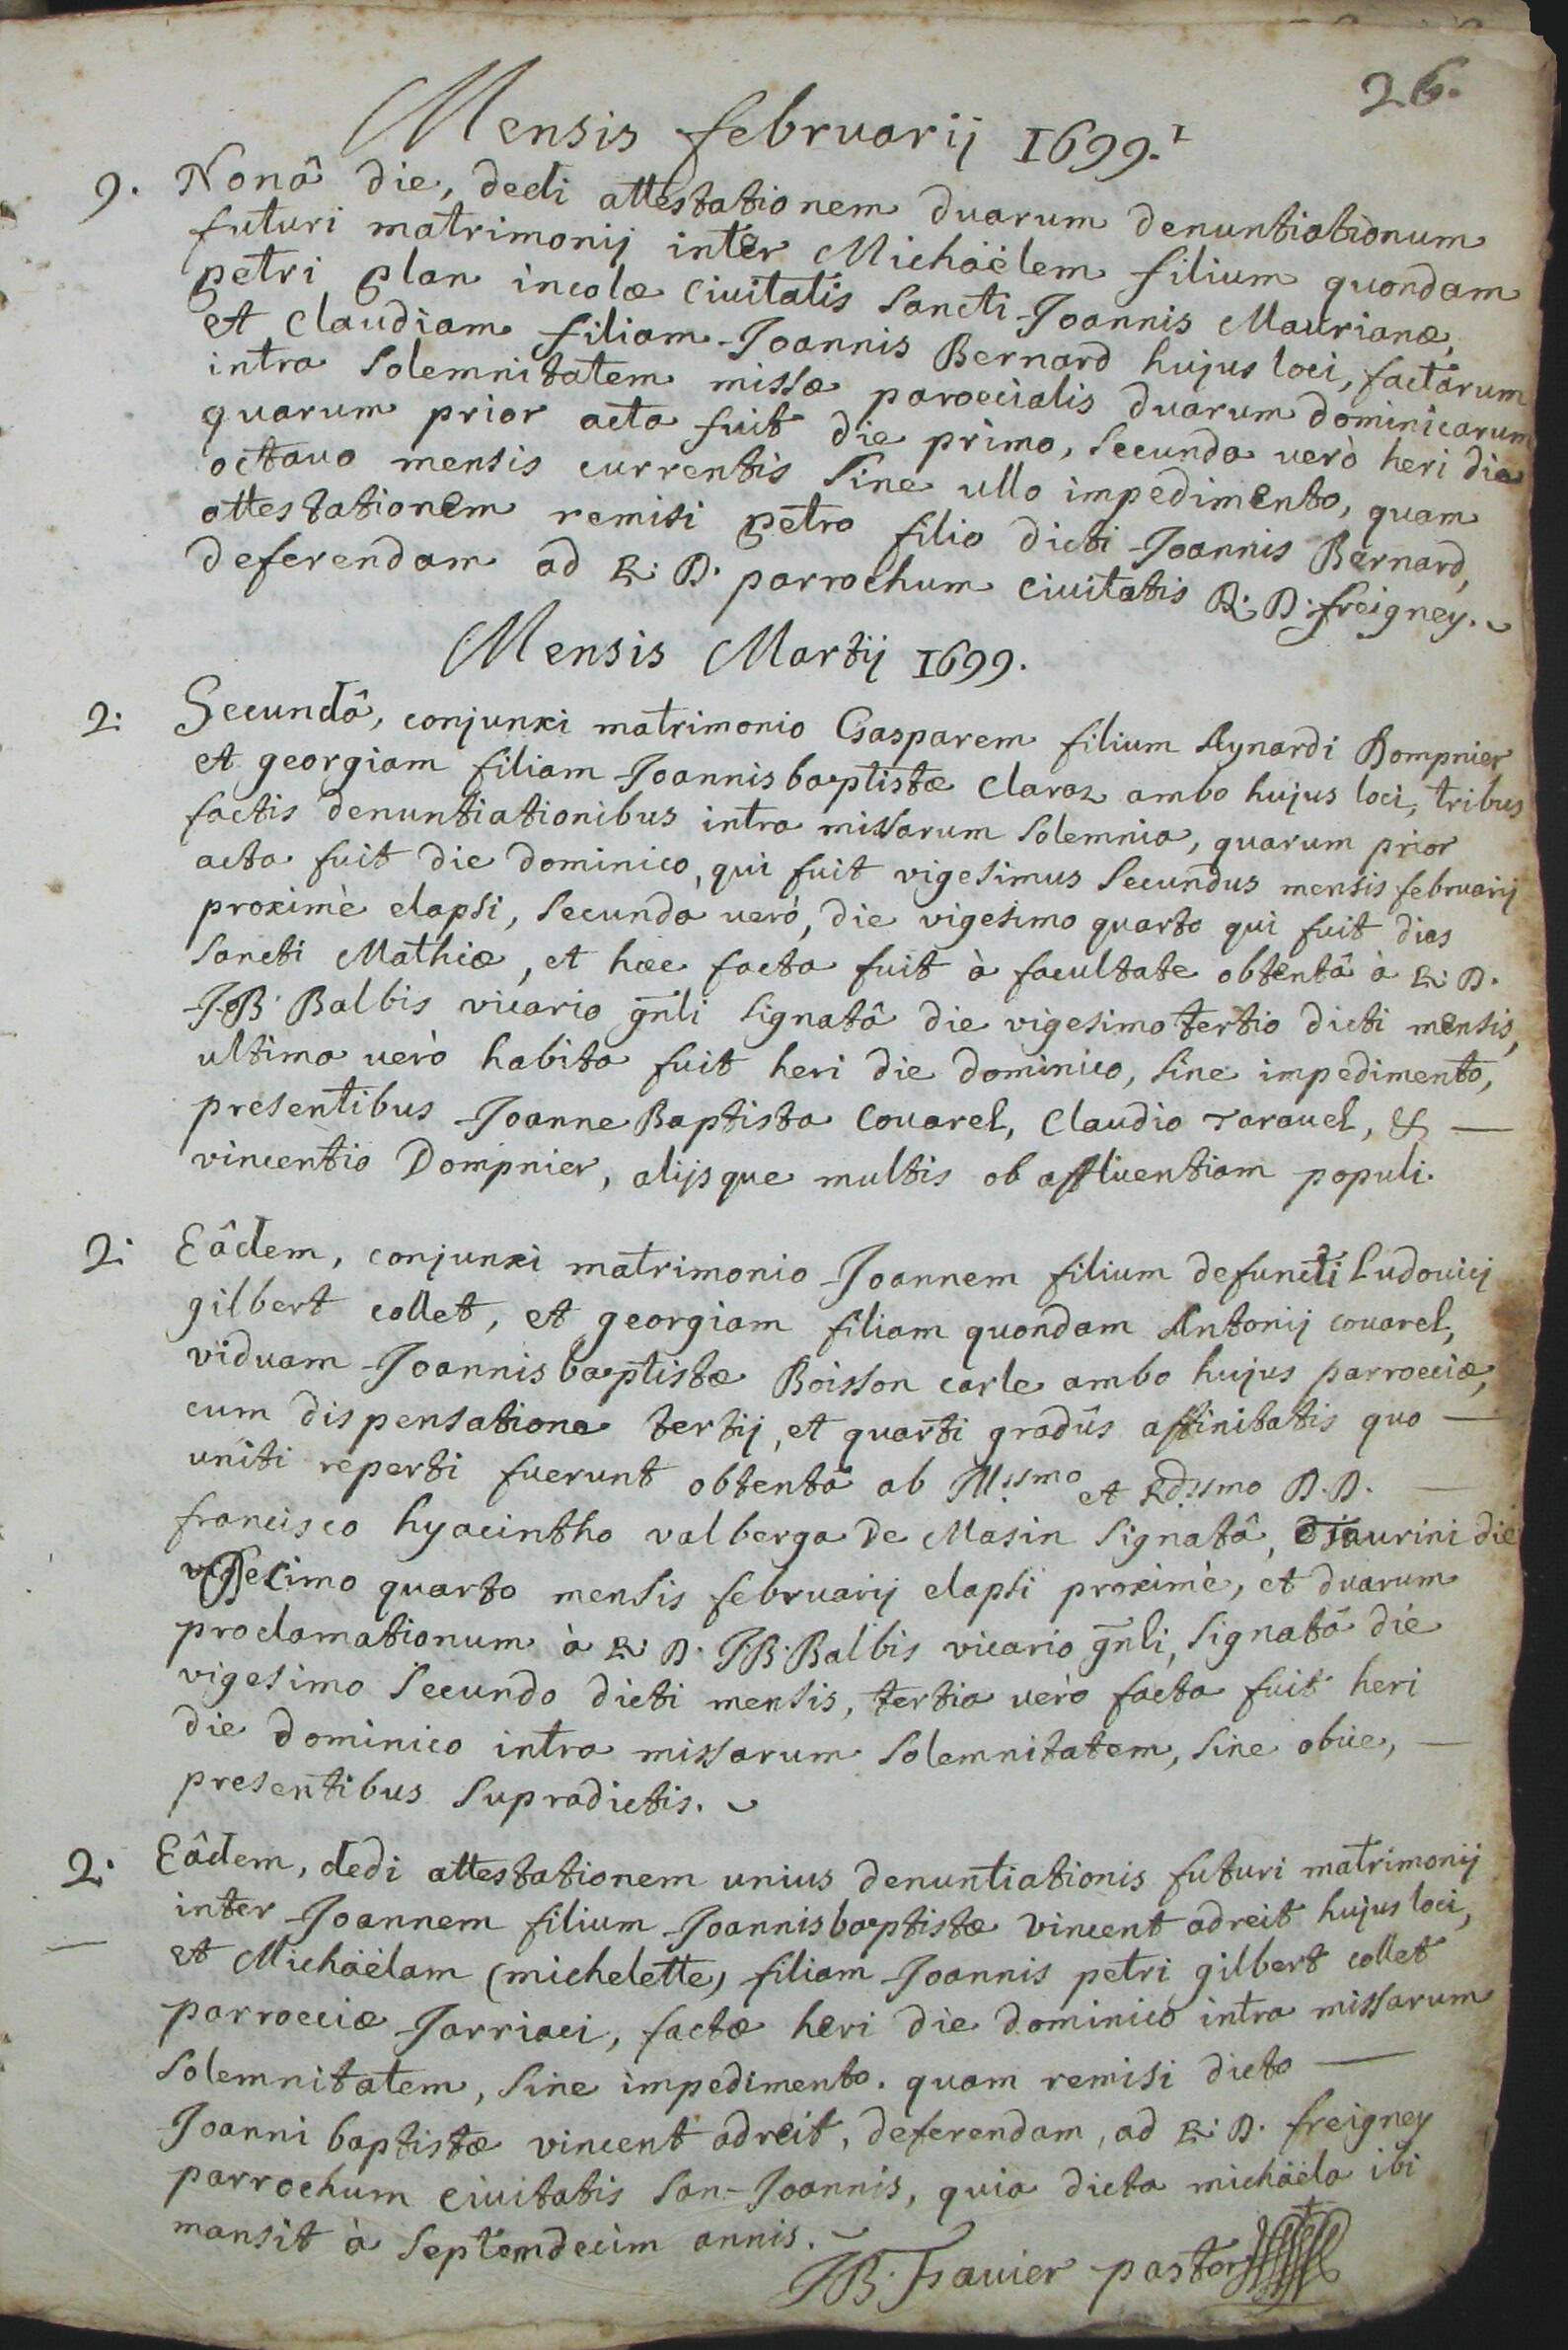 26.
Mensis februarij 1699.
9. Nonâ die, dedi attestationem duarum denuntiationum
futuri matrimonij inter Michäëlem filium quondam
petri plan incolæ Ciuitatis Sancti Joannis Maurianæ,
et Claudiam filiam Joannis Bernard hujus loci, factarum
intra Solemnitatem missæ paroecialis duarum dominicarum
quarum prior acta fuit die primo, Secunda verò heri die
octauo mensis currentis Sine ullo impedimento, quam
attestationem remisi petro filio dicti Joannis Bernard,
deferendam ad R. D. parrochum Ciuitatis R. D. freigney.
Mensis Martij 1699.
2. Secundâ, conjunxi matrimonio Gasparem filium Aynardi Dompnier
et georgiam filiam Joannisbaptistæ Claraz ambo hujus loci, tribus
factis denuntiationibus intra missarum Solemnia, quarum prior
acta fuit die dominico, qui fuit vigesimus Secundus mensis februarij
proximè elapsi, Secunda verò, die vigesimo quarto qui fuit dies
Sancti Mathiæ, et hæc facta fuit à facultate obtentâ à R. D.
J.B. Balbis vicario gnli Signatâ die vigesimo tertio dicti mensis,
ultima verò habita fuit heri die dominico, Sine impedimento,
presentibus Joanne Baptista Couarel, Claudio Tarauel, &
vincentio Dompnier, alijsque multis ob affluentiam populi.
2. Eâdem, conjunxi matrimonio Joannem filium defuncti Ludovicj
gilbert collet, et georgiam filiam quondam Antonij couarel,
viduam Joannisbaptistæ Boisson carle ambo hujus parroeciæ,
cum dispensatione tertij, et quarti gradûs affinitatis quo
uniti reperti fuerunt obtentâ ab Illssmo et Rdssmo D.D.
francisco hyacintho valberga de Masin Signatâ, Taurini die
quarto mensis februarij elapsi proximè, et duarum
proclamationum à R. D. J.B. Balbis vicario gnli, Signatâ die
vigesimo Secundo dicti mensis, tertia verò facta fuit heri
die dominico intra missarum Solemnitatem, Sine obice,
presentibus Supradictis.
2. Eâdem, dedi attestationem unius denuntiationis futuri matrimonij
inter Joannem filium Joannisbaptistæ vincent adreit hujus loci,
et Michäëlam (michelette) filiam Joannis petri gilbert collet
parroeciæ Jarriaci, factæ heri die dominico intra missarum
Solemnitatem, Sine impedimento. quam remisi dicto
Joanni baptistæ vincent adreit, deferendam, ad R. D. freigney
parrochum ciuitatis San-Joannis, quia dicta michäela ibi
mansit à Septemdecim annis.
JB. pastor